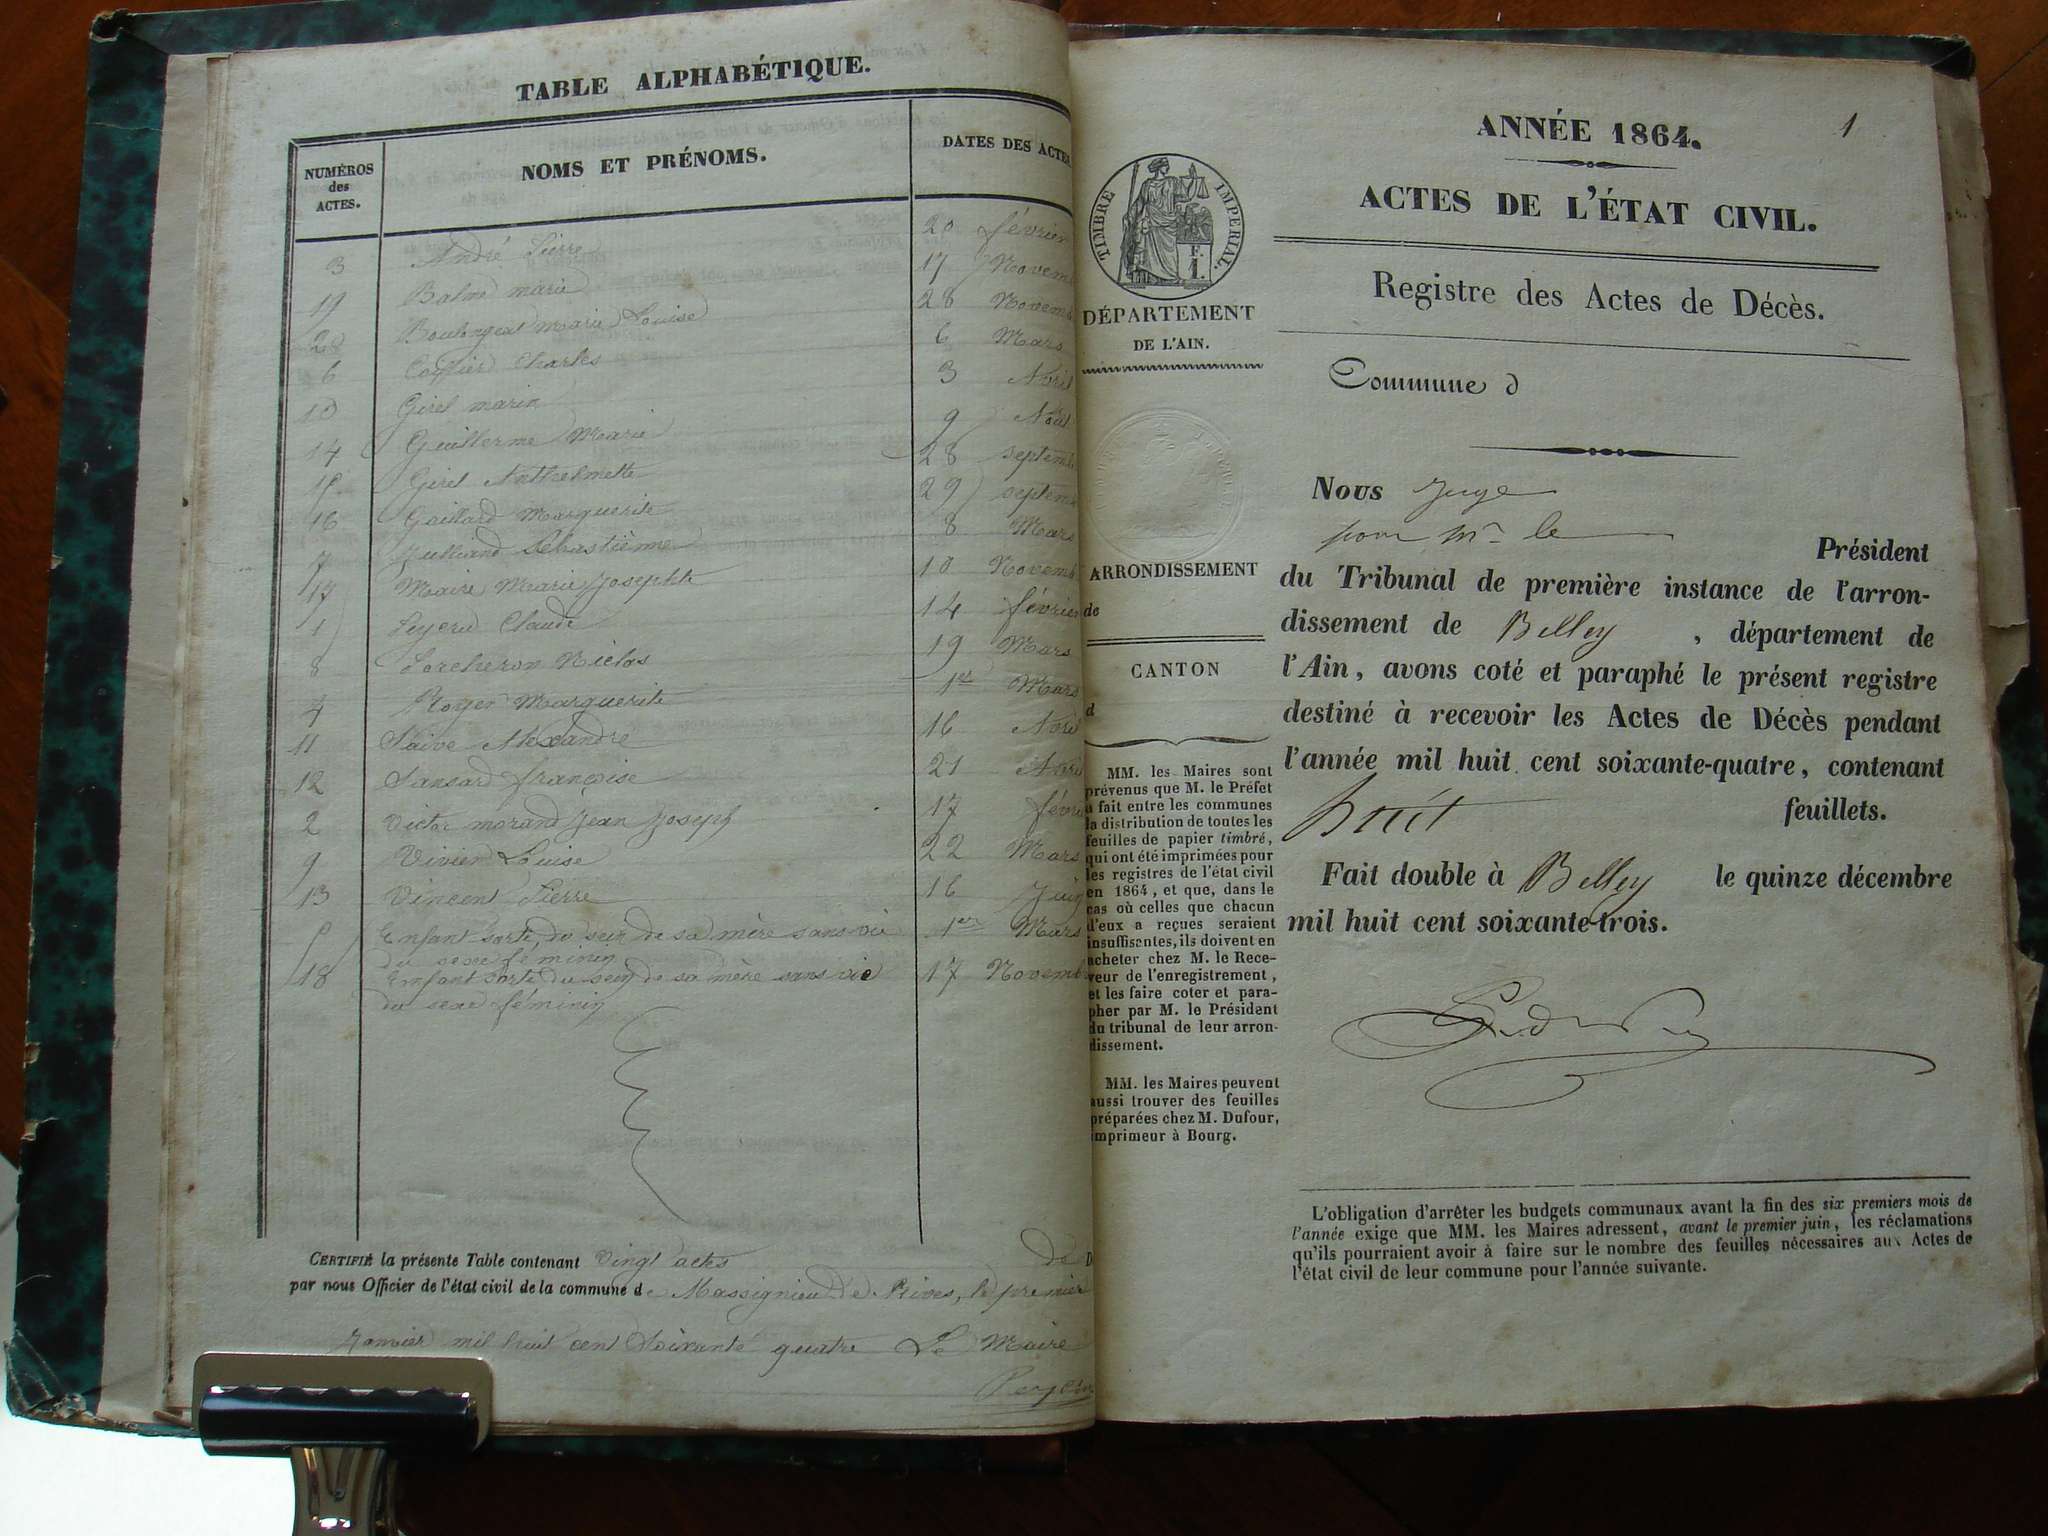 TABLE ALPHABÉTIQUE.
NUMÉROS
des
ACTES.
NOMS ET PRÉNOMS.
DATES DES ACTES
3 André Pierre 20 février
19 marie 17 Novemb
20 Marie Louise 28 Novemb
6 Charles 6 Mars
10 Girel marin 3 Avril
14 Guillerme Marie 9 Août
15 Girel Anthelmette 28 septemb
16 Gaillard Marguerite 29 septemb
7 Sébastienne 8 Mars
17 Maire Marie Josephte 10 Novemb
1 Claude 14 février
8 19 Mars
4 Roger Marguerite 1er Mars
11 Alexandre 16 Avril
12 Sansard françoise 21 Avril
2 Victor morand Jean Joseph 17 févri
9 Vivier Louise 22 Mars
13 Vincent Pierre 16 Juin
5 Enfant sorte du sein de sa mère sans vie 1er Mars
du sexe féminin
18 Enfant sorte du sein de sa mère sans vie 17 Novemb
du sexe féminin
CERTIFIÉ la présente Table contenant Vingt actes de D
par nous Officier de l'état civil de la commune de Massignieu de Rives, le premier
Janvier mil huit cent Soixante quatre Le Maire
ANNÉE 1864.
1
ACTES DE L'ÉTAT CIVIL.
Registre des Actes de Décès.
TIMBRE IMPERIAL.
F.
1.
DÉPARTEMENT
DE L'AIN.
ARRONDISSEMENT
de
CANTON
d
MM. les Maires sont
prévenus que M. le Préfet
a fait entre les communes
la distribution de toutes les
feuilles de papier timbré,
qui ont été imprimées pour
les registres de l'état civil
en 1864, et que, dans le
cas où celles que chacun
d'eux a reçues seraient
insuffisantes, ils doivent en
acheter chez M. le Rece-
veur de l'enregistrement,
et les faire coter et para-
pher par M. le Président
du tribunal de leur arron-
dissement.
MM. les Maires peuvent
aussi trouver des feuilles
préparées chez M. Dufour,
imprimeur à Bourg.
Commune d
Nous Juge
pour Mr le
Président
du Tribunal de première instance de l'arron-
dissement de Belley , département de
l'Ain, avons coté et paraphé le présent registre
destiné à recevoir les Actes de Décès pendant
l'année mil huit cent soixante-quatre, contenant
huit feuillets.
Fait double à Belley le quinze décembre
mil huit cent soixante-trois.
L'obligation d'arrêter les budgets communaux avant la fin des six premiers mois de
l'année exige que MM. les Maires adressent, avant le premier juin, les réclamations
qu'ils pourraient avoir à faire sur le nombre des feuilles nécessaires aux Actes de
l'état civil de leur commune pour l'année suivante.